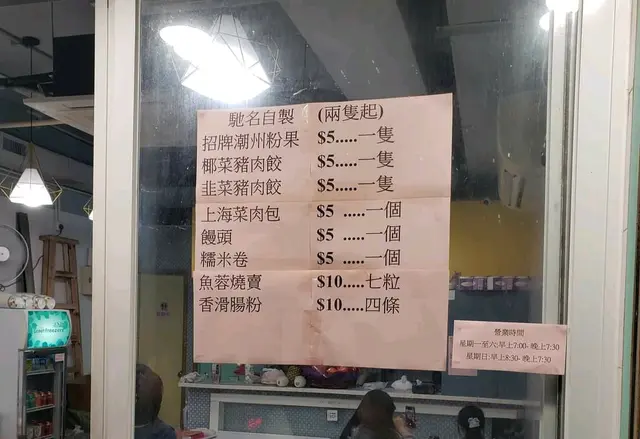 馳名自製 (兩隻起)
招牌潮州粉果 $5.....一隻
椰菜豬肉餃 $5.....一隻
韭菜豬肉餃 $5.....一隻
上海菜肉包 $5 .....一個
饅頭 $5 .....一個
糯米卷 $5 .....一個
魚蓉燒賣 $10.....七粒
香滑腸粉 $10.....四條
營業時間
星期一至六:早上7:00- 晚上7:30
星期日:早上8:30- 晚上7:30